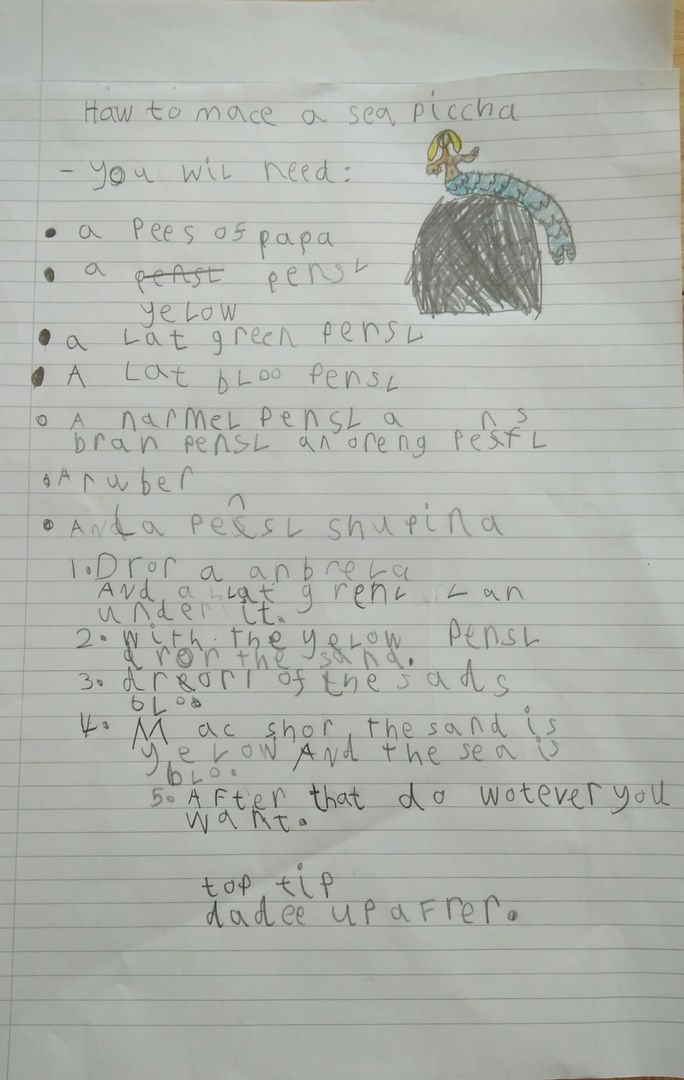 Haw to mace a sea piccha
- you wil need:
• a pees of papa
• a pensl
yelow
• a Lat green pensl
• A Lat bloo pensl
• A narmel pensl a
bran pensl an oreng
• A ruber
• And a shupina
1. Dror a anbrela
And a Lat gren an
under it.
2. with the yelow pensl
dror the sand.
3. of the sads
bloo
4. Mac shor the sand is
yelow And the sea is
bloo.
5. After that do wotever you
want.
top tip
dadee up afrer.